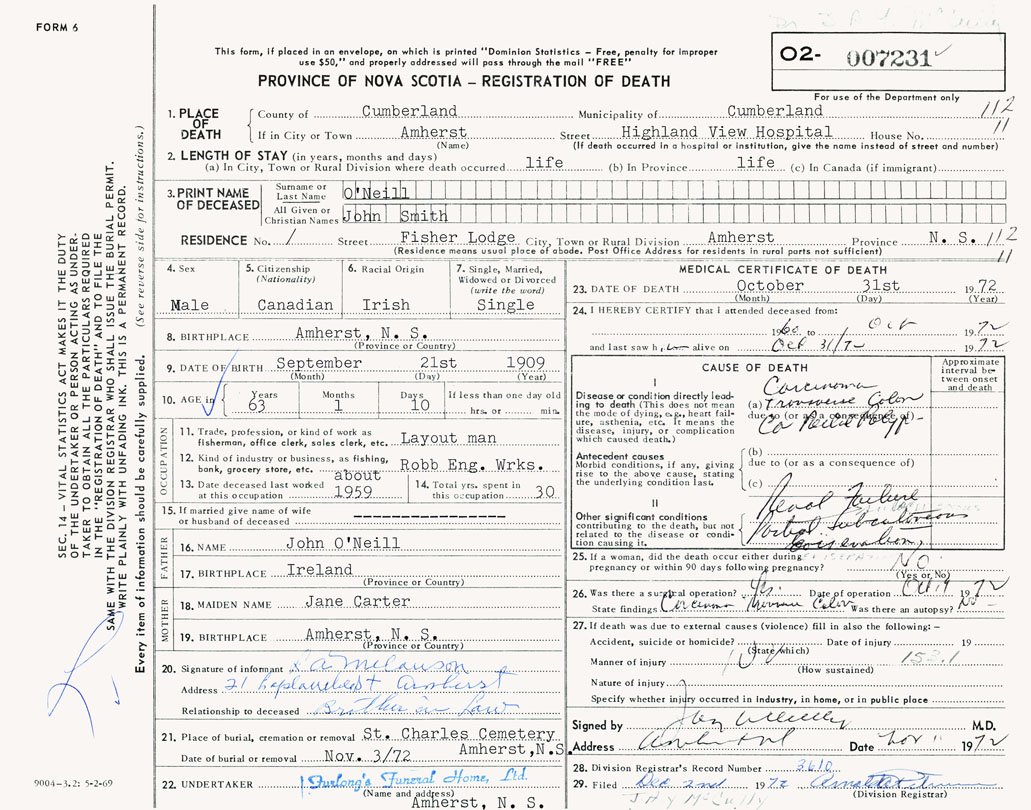 FORM 6
This form, if placed in an envelope, on which is printed "Dominion Statistics – Free, penalty for improper
use $50," and properly addressed will pass through the mail "FREE"
PROVINCE OF NOVA SCOTIA – REGISTRATION OF DEATH
O2- 007231
For use of the Department only
1. PLACE OF DEATH
County of Cumberland Municipality of Cumberland 112
If in City or Town Amherst Street Highland View Hospital House No. 11
(Name) (If death occurred in a hospital or institution, give the name instead of street and number)
2. LENGTH OF STAY (in years, months and days)
(a) In City, Town or Rural Division where death occurred life (b) In Province life (c) In Canada (if immigrant)
3. PRINT NAME OF DECEASED
Surname or Last Name O'Neill
All Given or Christian Names John Smith
RESIDENCE No. / Street Fisher Lodge City, Town or Rural Division Amherst Province N. S. 112
(Residence means usual place of abode. Post Office Address for residents in rural parts not sufficient) 11
4. Sex Male
5. Citizenship (Nationality) Canadian
6. Racial Origin Irish
7. Single, Married, Widowed or Divorced (write the word) Single
8. BIRTHPLACE Amherst, N. S.
(Province or Country)
9. DATE OF BIRTH September 21st 1909
(Month) (Day) (Year)
10. AGE in Years 63 Months 1 Days 10 If less than one day old hrs. or min.
OCCUPATION
11. Trade, profession, or kind of work as
fisherman, office clerk, sales clerk, etc. Layout man
12. Kind of industry or business, as fishing,
bank, grocery store, etc. Robb Eng. Wrks.
13. Date deceased last worked at this occupation about 1959
14. Total yrs. spent in this occupation 30
15. If married give name of wife
or husband of deceased --------------
FATHER
16. NAME John O'Neill
17. BIRTHPLACE Ireland
(Province or Country)
MOTHER
18. MAIDEN NAME Jane Carter
19. BIRTHPLACE Amherst, N. S.
(Province or Country)
20. Signature of informant
Address 21 Amherst
Relationship to deceased Brother in law
21. Place of burial, cremation or removal St. Charles Cemetery
Amherst, N.S.
Date of burial or removal Nov. 3/72
22. UNDERTAKER Furlong's Funeral Home, Ltd.
(Name and address)
Amherst, N. S.
MEDICAL CERTIFICATE OF DEATH
23. DATE OF DEATH October 31st 1972
(Month) (Day) (Year)
24. I HEREBY CERTIFY that I attended deceased from:
19 to Oct 1972
and last saw h alive on Oct 31/72 1972
CAUSE OF DEATH
Approximate interval between onset and death
I
Disease or condition directly lead-
ing to death (This does not mean
the mode of dying, e.g., heart fail-
ure, asthenia, etc. It means the
disease, injury, or complication
which caused death.)
Carcinoma
(a) Transverse Colon
due to (or as a consequence of)
Antecedent causes
Morbid conditions, if any, giving
rise to the above cause, stating
the underlying condition last.
(b)
due to (or as a consequence of)
(c)
II
Other significant conditions
contributing to the death, but not
related to the disease or condi-
tion causing it.
Renal Failure
Partial
25. If a woman, did the death occur either during
pregnancy or within 90 days following pregnancy? No
(Yes or No)
26. Was there a surgical operation? Yes Date of operation Oct 19 1972
State findings Carcinoma Transverse Colon Was there an autopsy? No
27. If death was due to external causes (violence) fill in also the following:–
Accident, suicide or homicide? Date of injury 19
(State which)
Manner of injury 153.1
(How sustained)
Nature of injury
Specify whether injury occurred in industry, in home, or in public place
Signed by M.D.
Address Amherst Date Nov 1972
28. Division Registrar's Record Number 3610
29. Filed Dec 2nd 1972
(Division Registrar)
J H Y McCully
SEC. 14 – VITAL STATISTICS ACT MAKES IT THE DUTY
OF THE UNDERTAKER OR PERSON ACTING AS UNDER-
TAKER TO OBTAIN ALL THE PARTICULARS REQUIRED
IN THE "REGISTRATION OF DEATH" AND TO FILE THE
SAME WITH THE DIVISION REGISTRAR WHO SHALL ISSUE THE BURIAL PERMIT.
WRITE PLAINLY WITH UNFADING INK. THIS IS A PERMANENT RECORD.
Every item of information should be carefully supplied. (See reverse side for instructions.)
9004-3.2: 5-2-69